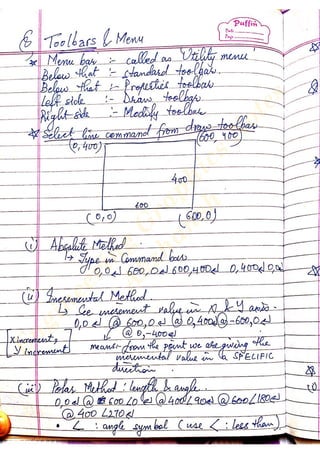 Puffin
Date
Page
⑧ Toolbars & Menu
* Menu bar :- called as 'Utility menu'
Below that :- standard toolbar.
Below that :- Properties toolbar
Left side :- Draw toolbar
Right side :- Modify toolbar
* Select line command from draw toolbar
(0,400) (600,400)
400
600
(0,0) (600,0)
(i) Absolute Method.
↳ Type in Command bar
0,0↲ 600,0↲ 600,400↲ 0,400↲ 0,0↲
(ii) Incremental Method.
↳ increment value in X & Y axis.
0,0↲ @600,0↲ @0,400↲ @-600,0↲
@0,-400↲
X increment,
Y increment
means:- from the point we are giving the
incremental value in a SPECIFIC
direction.
(iii) Polar Method : length & angle.
0,0↲ @600∠0↲ @400∠90↲ @600∠180↲
@400∠270↲
• ∠ : angle symbol (use < : less than)